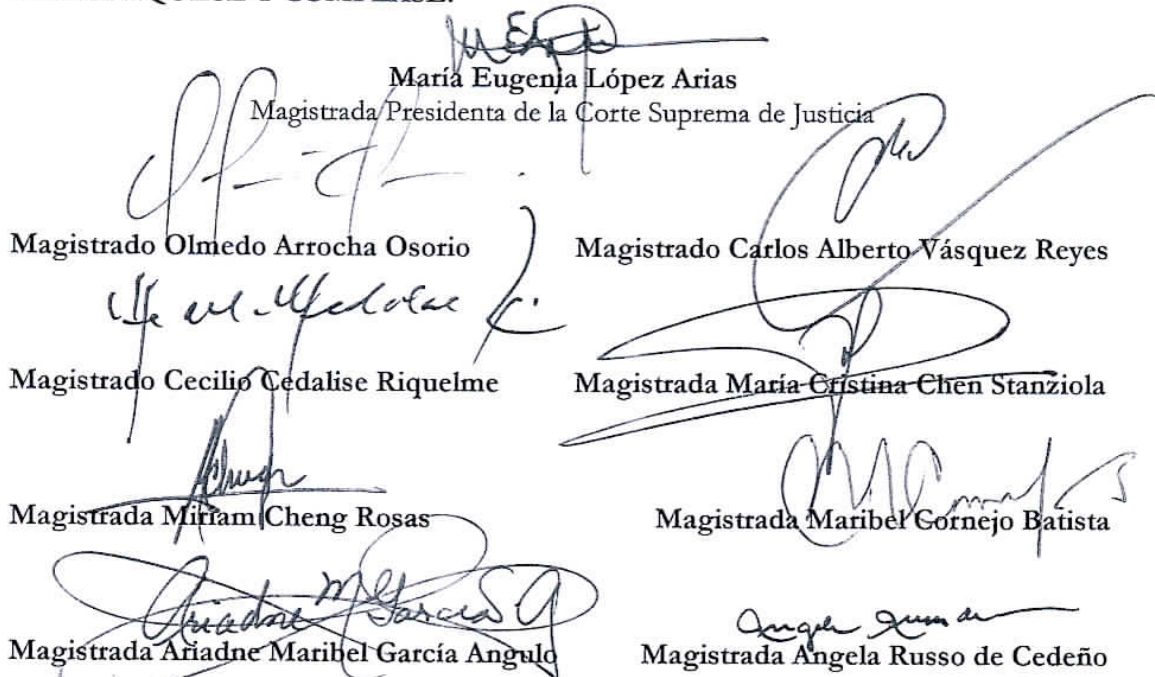 María Eugenia López Arias
Magistrada Presidenta de la Corte Suprema de Justicia
Magistrado Olmedo Arrocha Osorio Magistrado Carlos Alberto Vásquez Reyes
Magistrado Cecilio Cedalise Riquelme Magistrada María Cristina Chen Stanziola
Magistrada Miriam Cheng Rosas Magistrada Maribel Cornejo Batista
Ariadne M García
Magistrada Ariadne Maribel García Angulo Magistrada Angela Russo de Cedeño